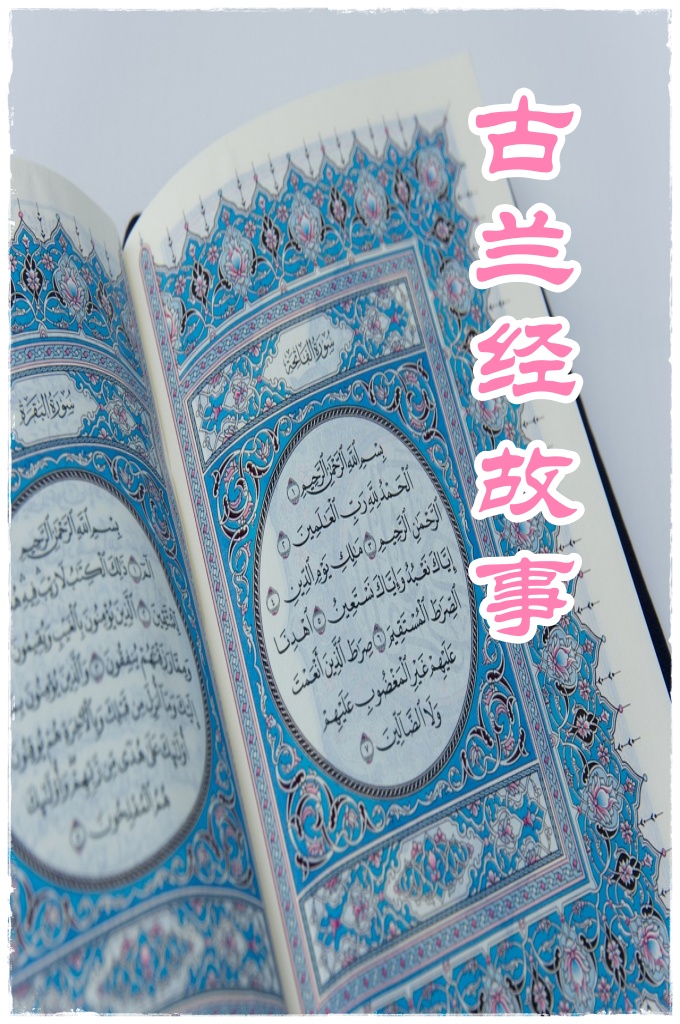 古兰经故事
سُورَةُ الفَاتِحَةِ
بِسْمِ ٱللَّهِ ٱلرَّحْمَٰنِ ٱلرَّحِيمِ ١
ٱلْحَمْدُ لِلَّهِ رَبِّ ٱلْعَٰلَمِينَ ٢
ٱلرَّحْمَٰنِ ٱلرَّحِيمِ ٣ مَٰلِكِ يَوْمِ ٱلدِّينِ ٤
إِيَّاكَ نَعْبُدُ وَإِيَّاكَ نَسْتَعِينُ ٥ ٱهْدِنَا
ٱلصِّرَٰطَ ٱلْمُسْتَقِيمَ ٦ صِرَٰطَ ٱلَّذِينَ أَنْعَمْتَ
عَلَيْهِمْ غَيْرِ ٱلْمَغْضُوبِ عَلَيْهِمْ
وَلَا ٱلضَّآلِّينَ ٧
سُورَةُ البَقَرَةِ
بِسْمِ ٱللَّهِ ٱلرَّحْمَٰنِ ٱلرَّحِيمِ
الٓمٓ ١ ذَٰلِكَ ٱلْكِتَٰبُ لَا رَيْبَ فِيهِ
ٱلَّذِينَ يُؤْمِنُونَ بِٱلْغَيْبِ وَيُقِيمُونَ
وَمِمَّا رَزَقْنَٰهُمْ يُنفِقُونَ ٣ وَٱلَّذِينَ يُؤْمِنُونَ
إِلَيْكَ وَمَآ أُنزِلَ مِن قَبْلِكَ وَبِٱلْءَاخِرَةِ هُمْ يُوقِنُونَ
أُو۟لَٰٓئِكَ عَلَىٰ هُدًى مِّن رَّبِّهِمْ وَأُو۟لَٰٓئِكَ
هُمُ ٱلْمُفْلِحُونَ ٥